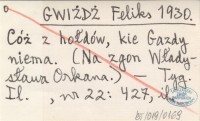 GWIŻDŻ Feliks 1930.
Cóż z hołdów, kie Gazdy
niema. (Na zgon Włady-
sława Orkana.) — Tyg.
Il. , nr 22: 427, il.